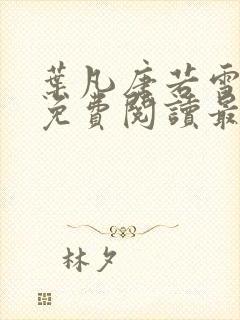 葉凡唐若雪
免費閱讀最
林夕